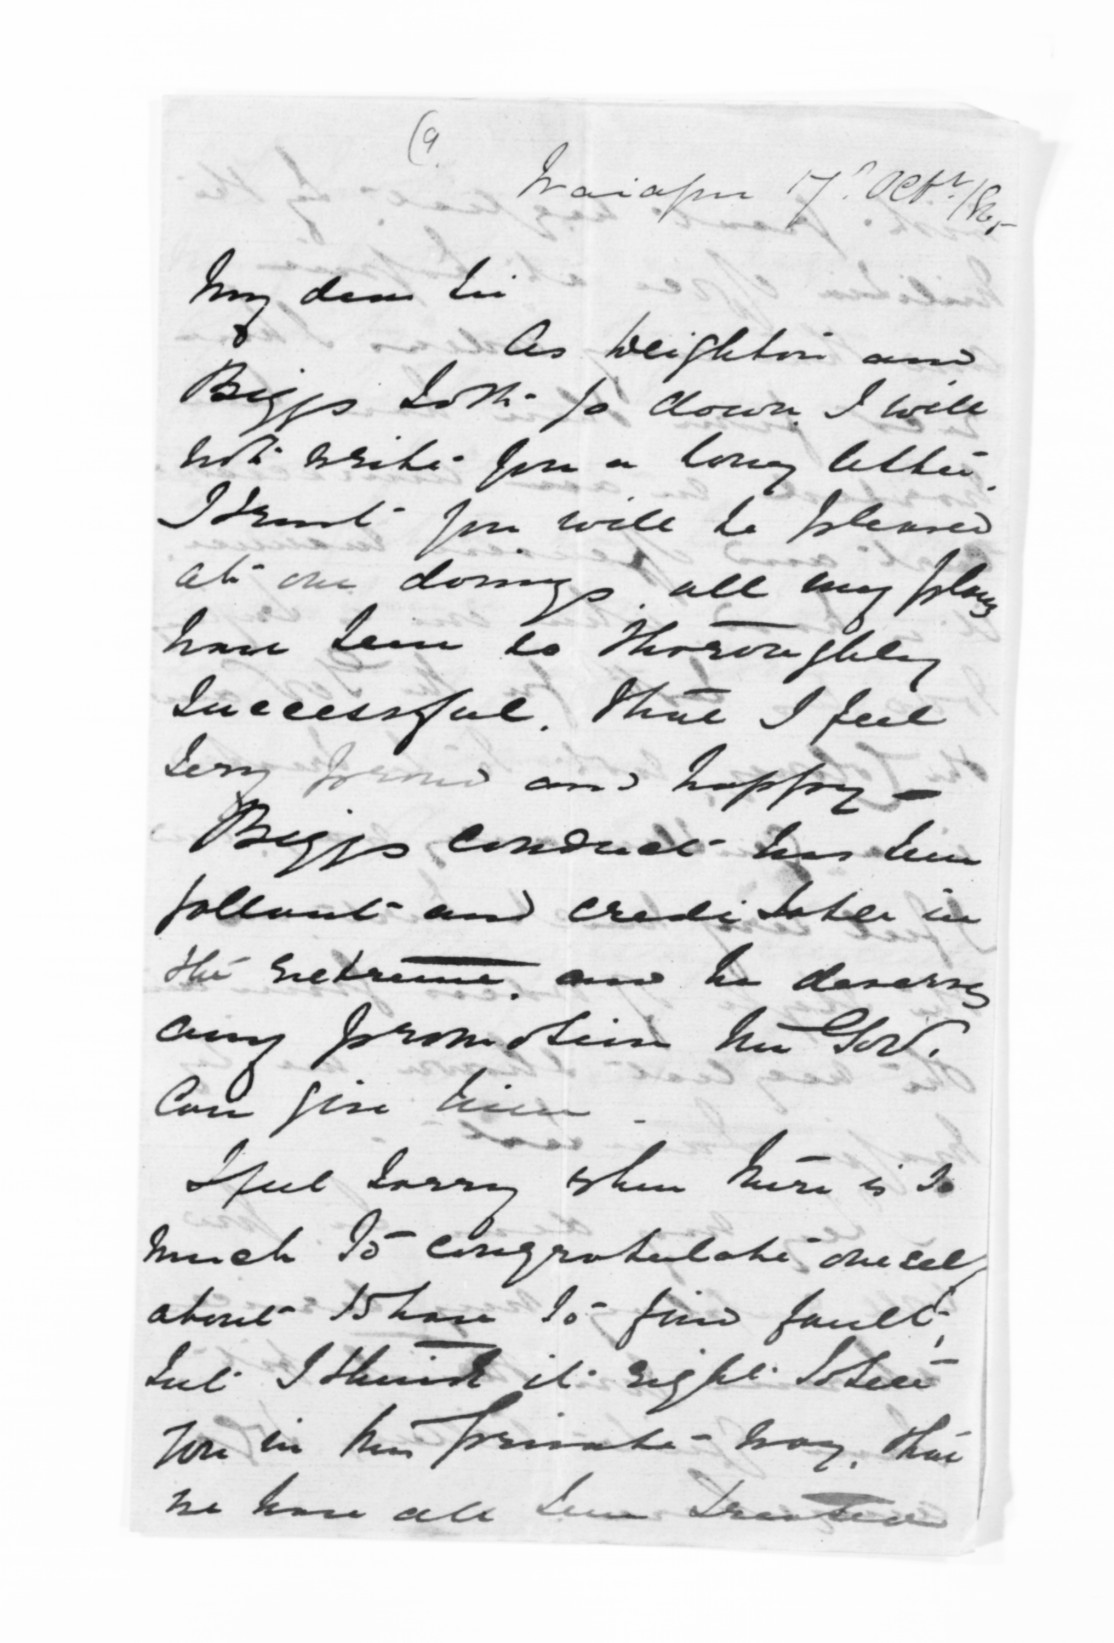 (9
Waiapu 17th Octr/65
My dear Sir
As Deighton and
Biggs both go down I will
not write you a long letter.
I trust you will be pleased
at our doings. all my plans
have been so thoroughly
successful. that I feel
very proud and happy -
Biggs conduct has been
gallant and creditable in
the extreme. and he deserves
any promotion the Govt.
can give him -
I feel sorry when there is so
much to congratulate oneself
about to have to find fault,
but I think it right to tell
you in this private way. that
we have all been treated